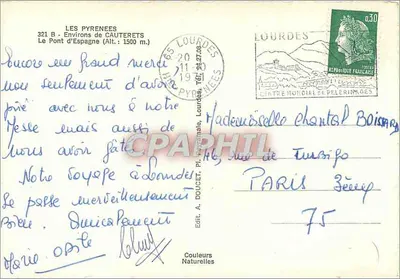 LES PYRENEES
321 B - Environs de CAUTERETS
Le Pont d'Espagne (Alt. : 1500 m.)
Encore un grand merci
non seulement d'avoir
prié avec nous à notre
Messe mais aussi de
nous avoir
Notre voyage à Lourdes
se passe merveilleusement
Bien. Amicalement
Marie
65 LOURDES
20
11-10
19
HTES PYRENEES
LOURDES
CENTRE MONDIAL DE PELERINAGES
0,30
REPUBLIQUE FRANCAISE
Mademoiselle Chantal Boissard
46, rue de Turbigo
PARIS 3ème
75
Edit. A. DOUCET, Lourdes, Tél.
CPAPHIL
Couleurs
Naturelles